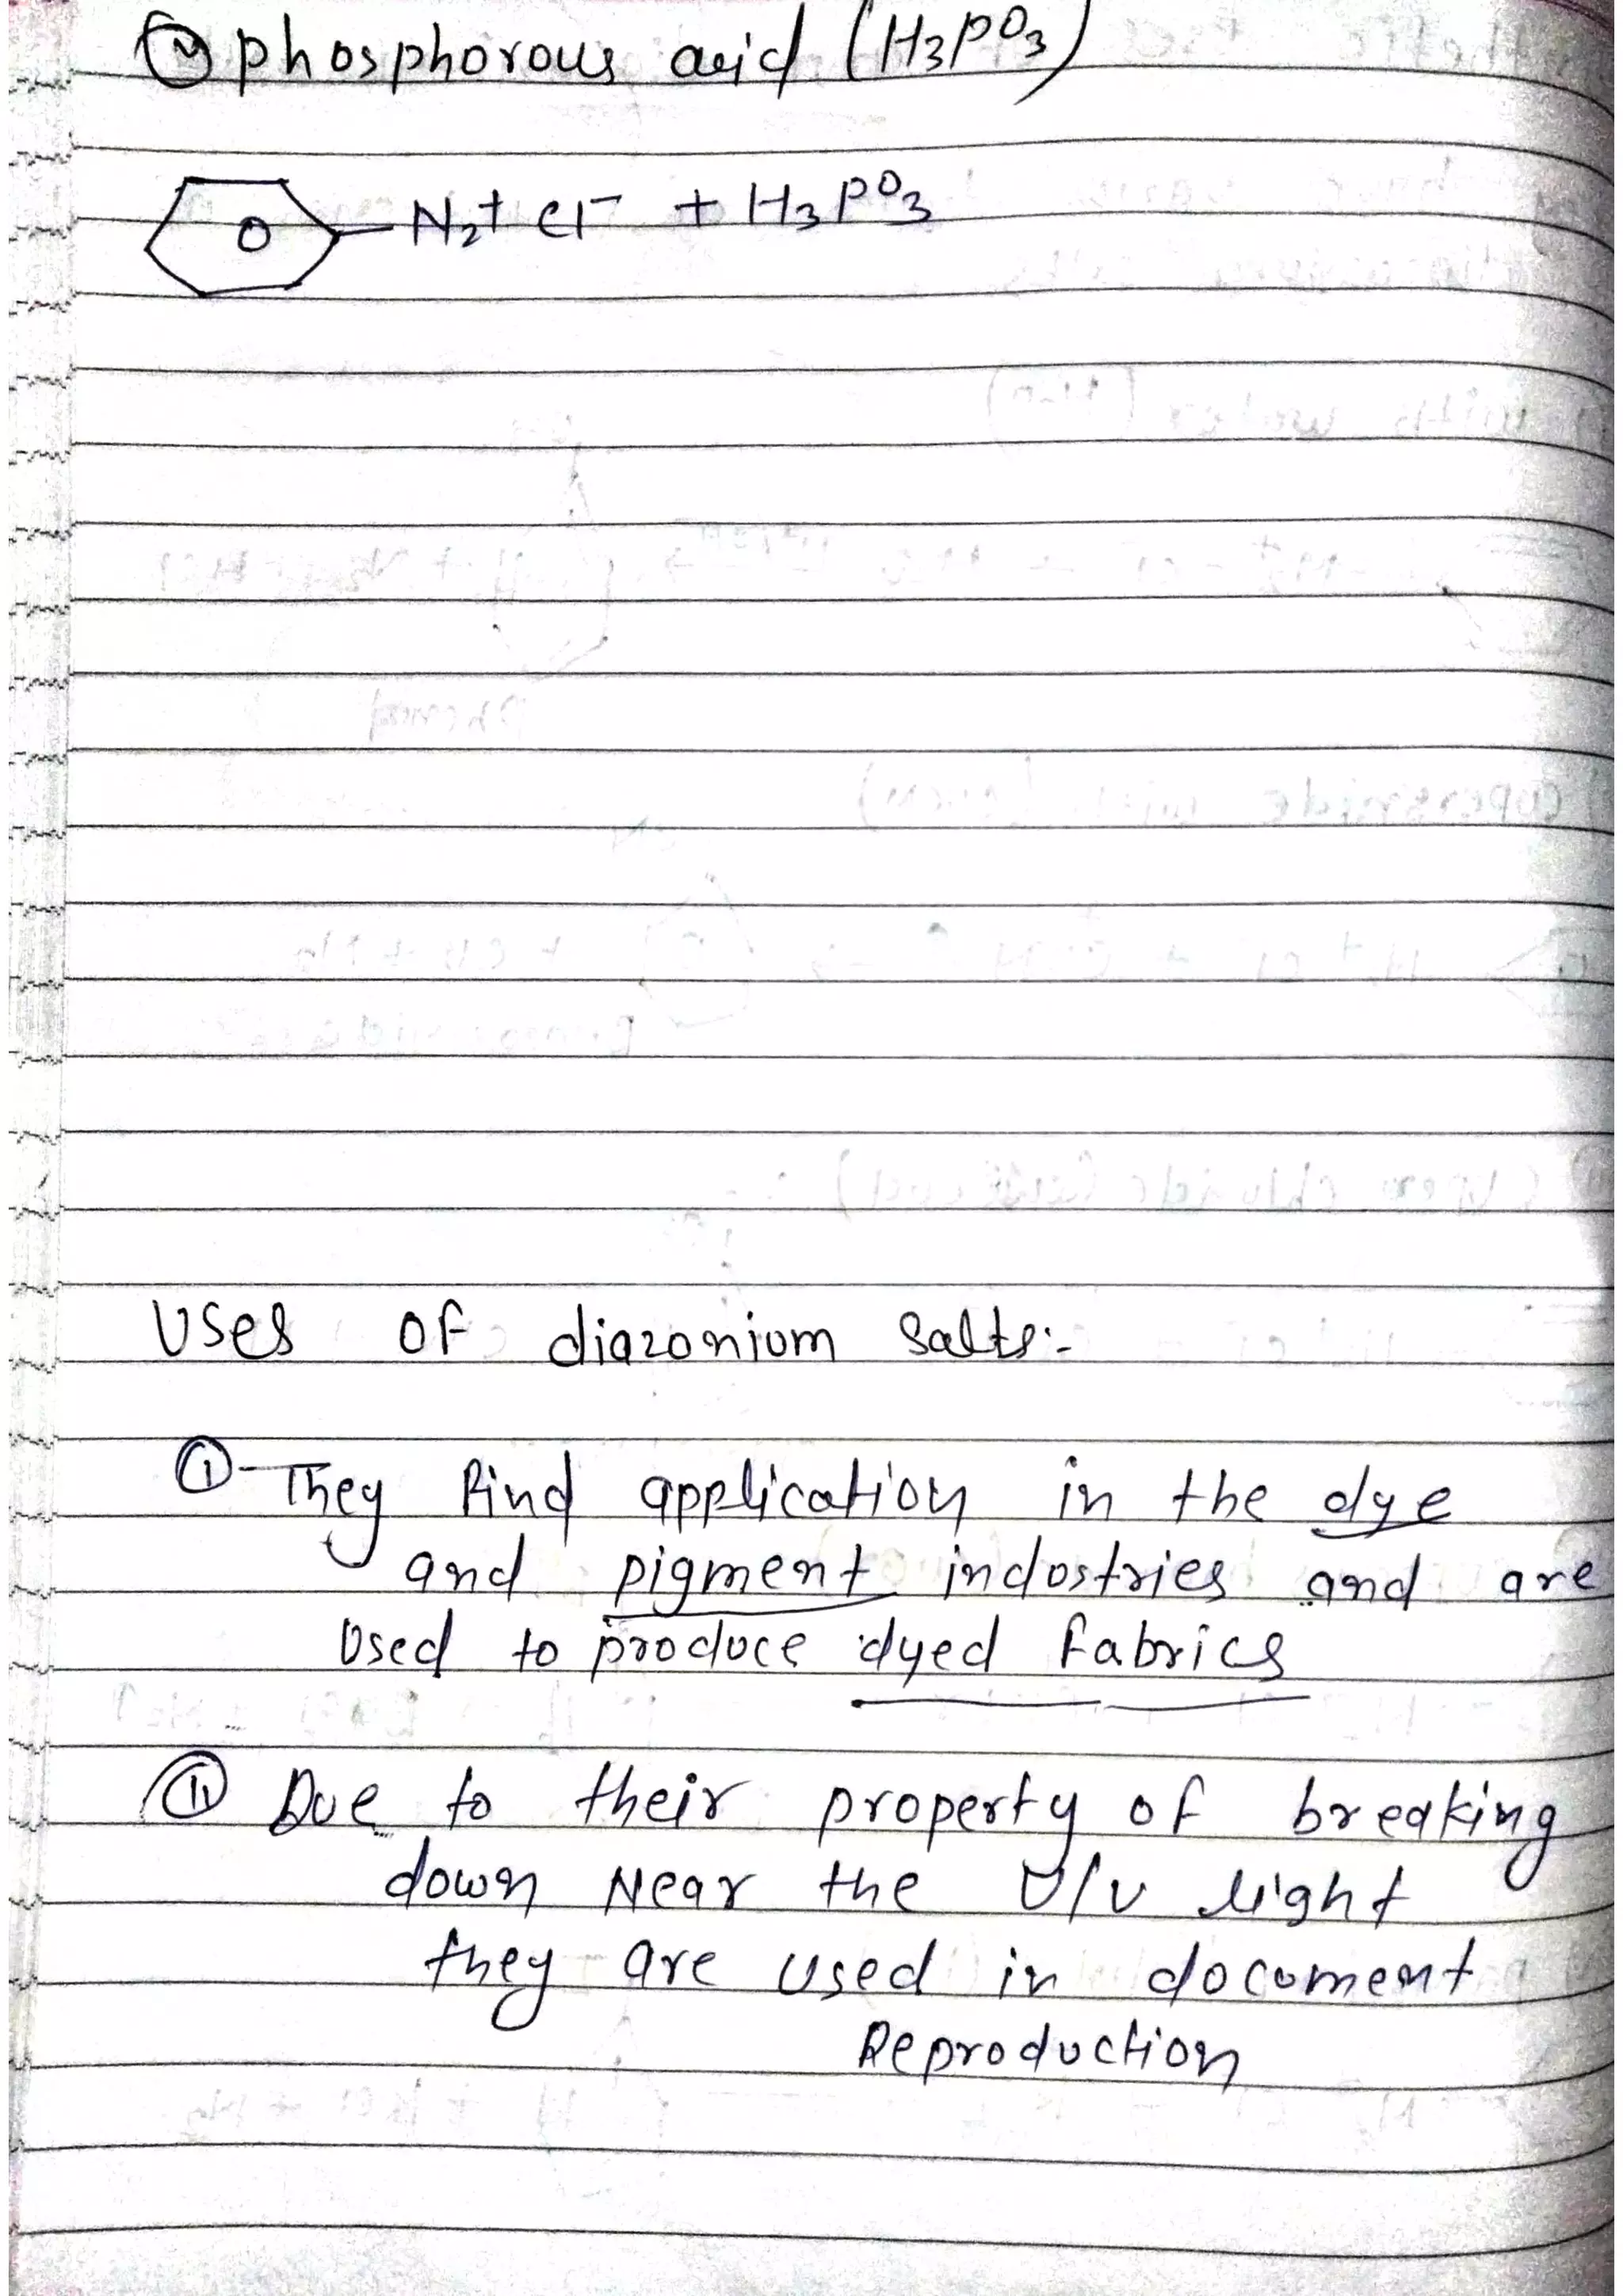 ⓥ phosphorous acid (H3PO3)
N2+ Cl- + H3PO3
Uses of diazonium salts:-
① They find application in the dye
and pigment industries and are
used to produce dyed fabrics
⑪ Due to their property of breaking
down Near the U/V light
they are used in document
Reproduction